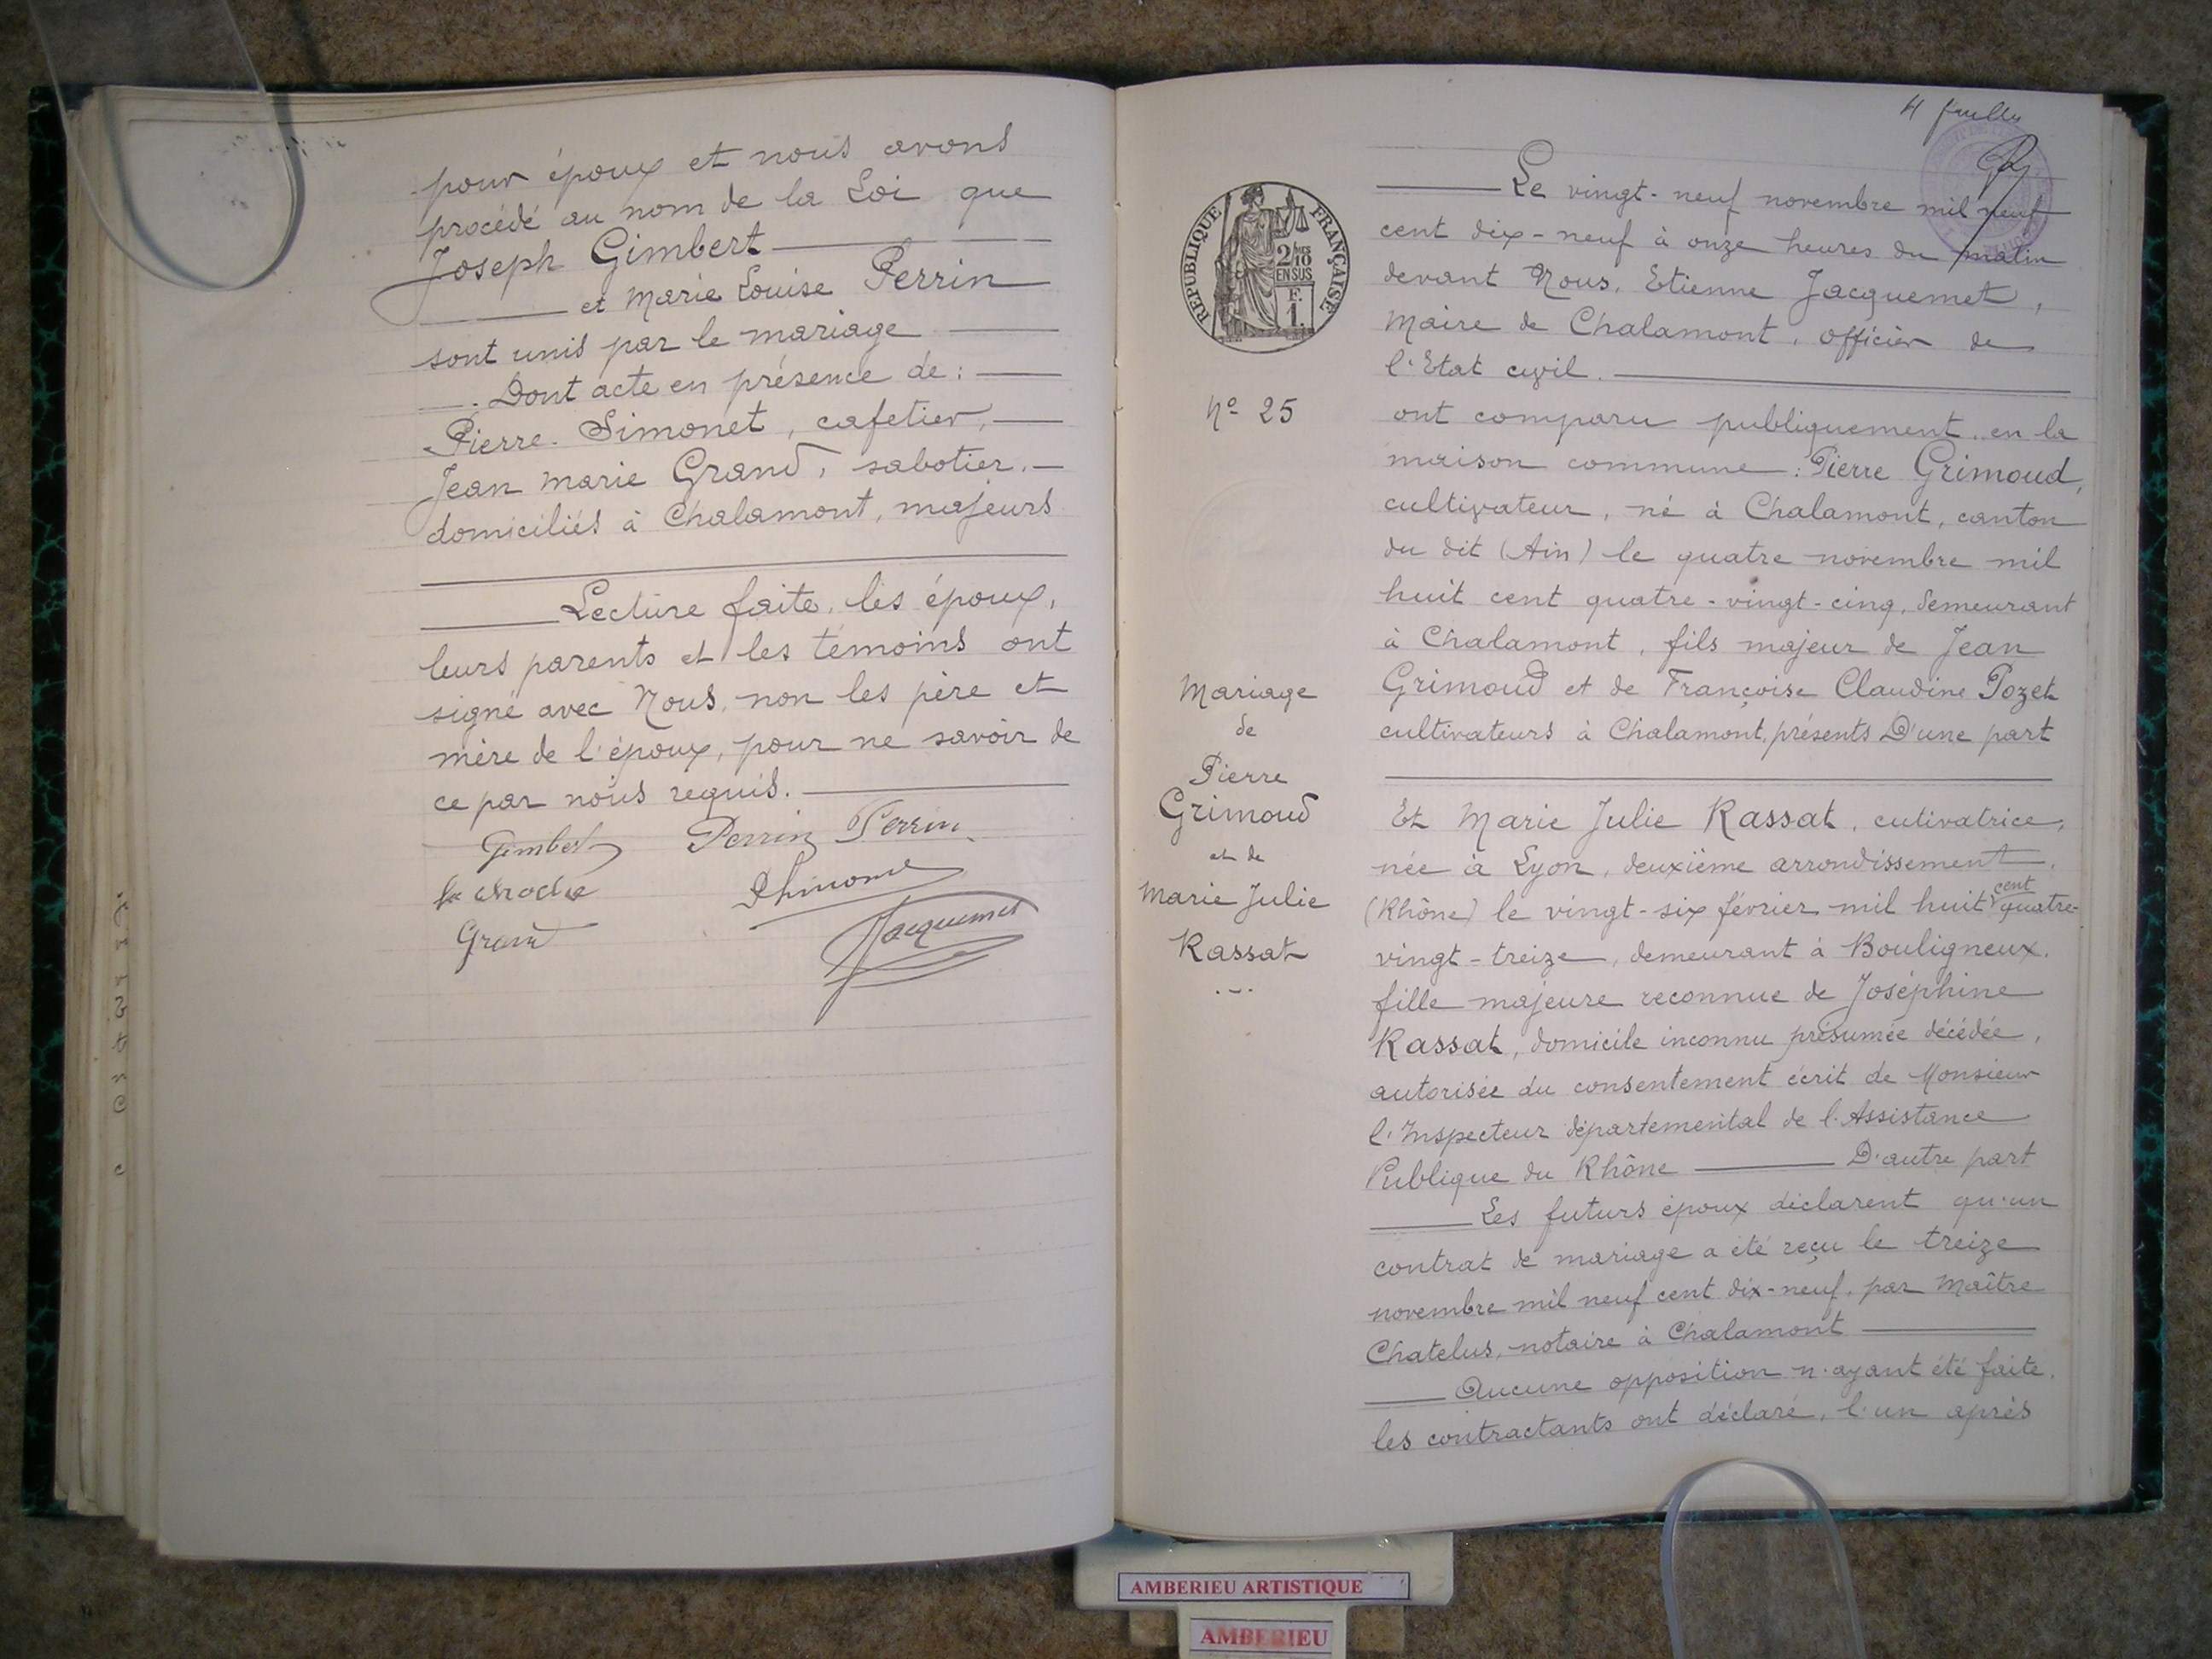 pour époux et nous avons
procédé au nom de la Loi que
Joseph Gimbert
et Marie Louise Perrin
sont unis par le mariage
Dont acte en présence de :
Pierre Simonet, cafetier,
Jean Marie Grand, sabotier,
domiciliés à Chalamont, majeurs
Lecture faite, les époux,
leurs parents et les témoins ont
signé avec Nous, non les père et
mère de l'époux, pour ne savoir de
ce par nous requis.
Gimbert Perrin Perrin
Grand
Jacquemet
4
Le vingt-neuf novembre mil neuf
cent dix-neuf à onze heures du matin
devant Nous, Etienne Jacquemet,
Maire de Chalamont, officier de
l'Etat civil.
ont comparu publiquement en la
maison commune : Pierre Grimoud,
cultivateur, né à Chalamont, canton
du dit (Ain) le quatre novembre mil
huit cent quatre-vingt-cinq, demeurant
à Chalamont, fils majeur de Jean
Grimoud et de Françoise Claudine Pozet
cultivateurs à Chalamont, présents D'une part
Et Marie Julie Rassat, cutivatrice,
née à Lyon, deuxième arrondissement,
(Rhône) le vingt-six février mil huit cent quatre-
vingt-treize, demeurant à Bouligneux.
fille majeure reconnue de Joséphine
Rassat, domicile inconnu présumée décédée,
autorisée du consentement écrit de Monsieur
l'Inspecteur départemental de l'Assistance
Publique du Rhône D'autre part
Les futurs époux déclarent qu'un
contrat de mariage a été reçu le treize
novembre mil neuf cent dix-neuf, par Maître
Chatelus, notaire à Chalamont
Aucune opposition n'ayant été faite,
les contractants ont déclaré, l'un après
REPUBLIQUE FRANÇAISE
2
10
EN SUS
F.
1.
Nº 25
Mariage
de
Pierre
Grimoud
et de
Marie Julie
Rassat
AMBERIEU ARTISTIQUE
AMBERIEU